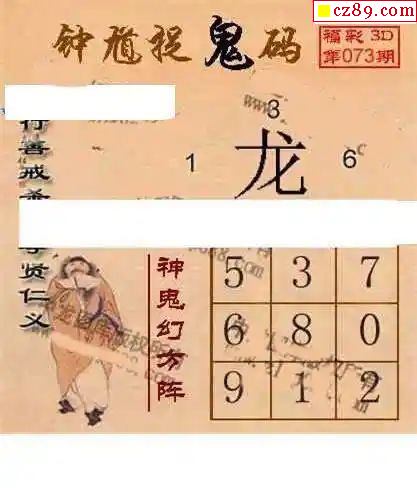 cz89.com
钟馗捉鬼码
福彩3D
第073期
3
1 龙 6
行善戒
贤仁义
神鬼幻方阵
5 3 7
6 8 0
9 1 2